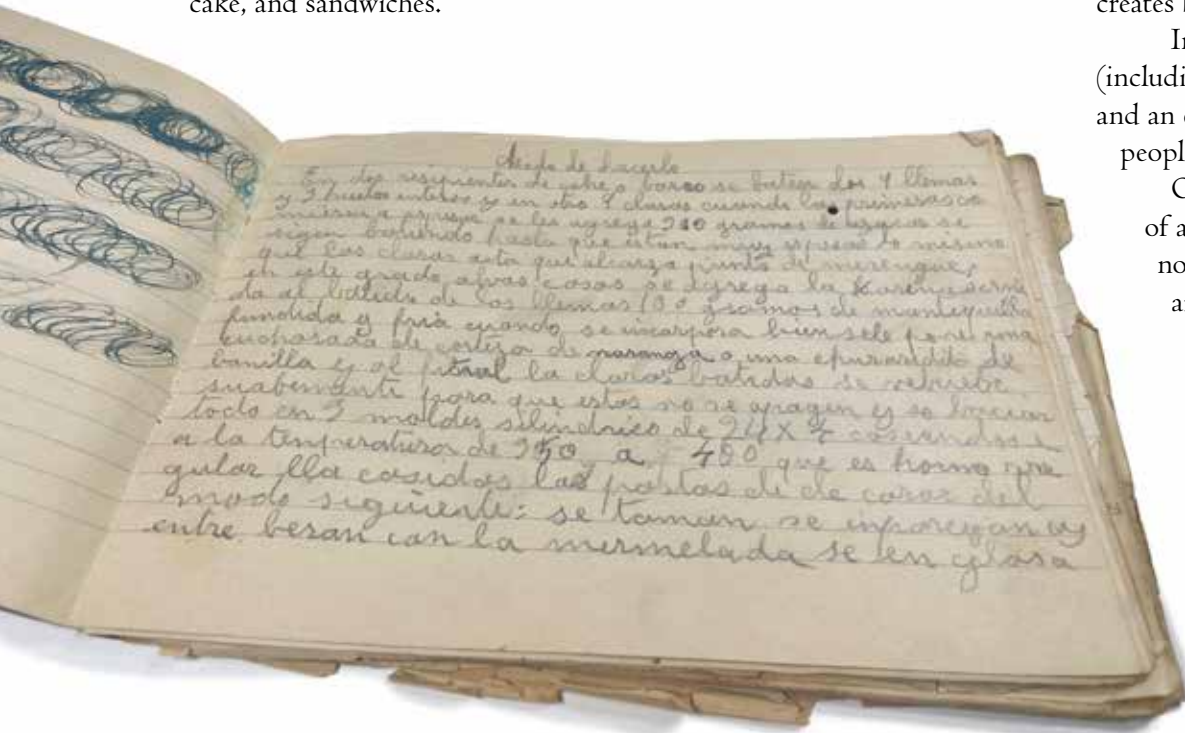 cake, and sandwiches.
creates
(includi
and an
peopl
of a
no
Modo de hacerlo
En dos resipientes de cobre o barro se baten dos 4 llemas
y 3 huebos interos y en otro 4 claras cuando las primeras
se les agrega 200 gramos de
sigen batiendo hasta que estan muy espesas lo mismo
que las claras asta que alcanza punto de merengue,
en este grado alvas cosas se agrega la harina serni
da al batido de las llemas 100 gramos de mantequilla
fundida y fria cuando se incorpora bien sele pone una
cucharada de corteza de naranga o una de
banilla y al final la claras batidas se
suabemente para que estas no se apagen y se bacian
todo en 2 moldes silindrico de 24 X 4
a la temperatura de a 400 que es horno rre
gular lla cosidas las pastas di de del
modo siguiente: se toman se inparegan y
entre besan con la mermelada se en glasa